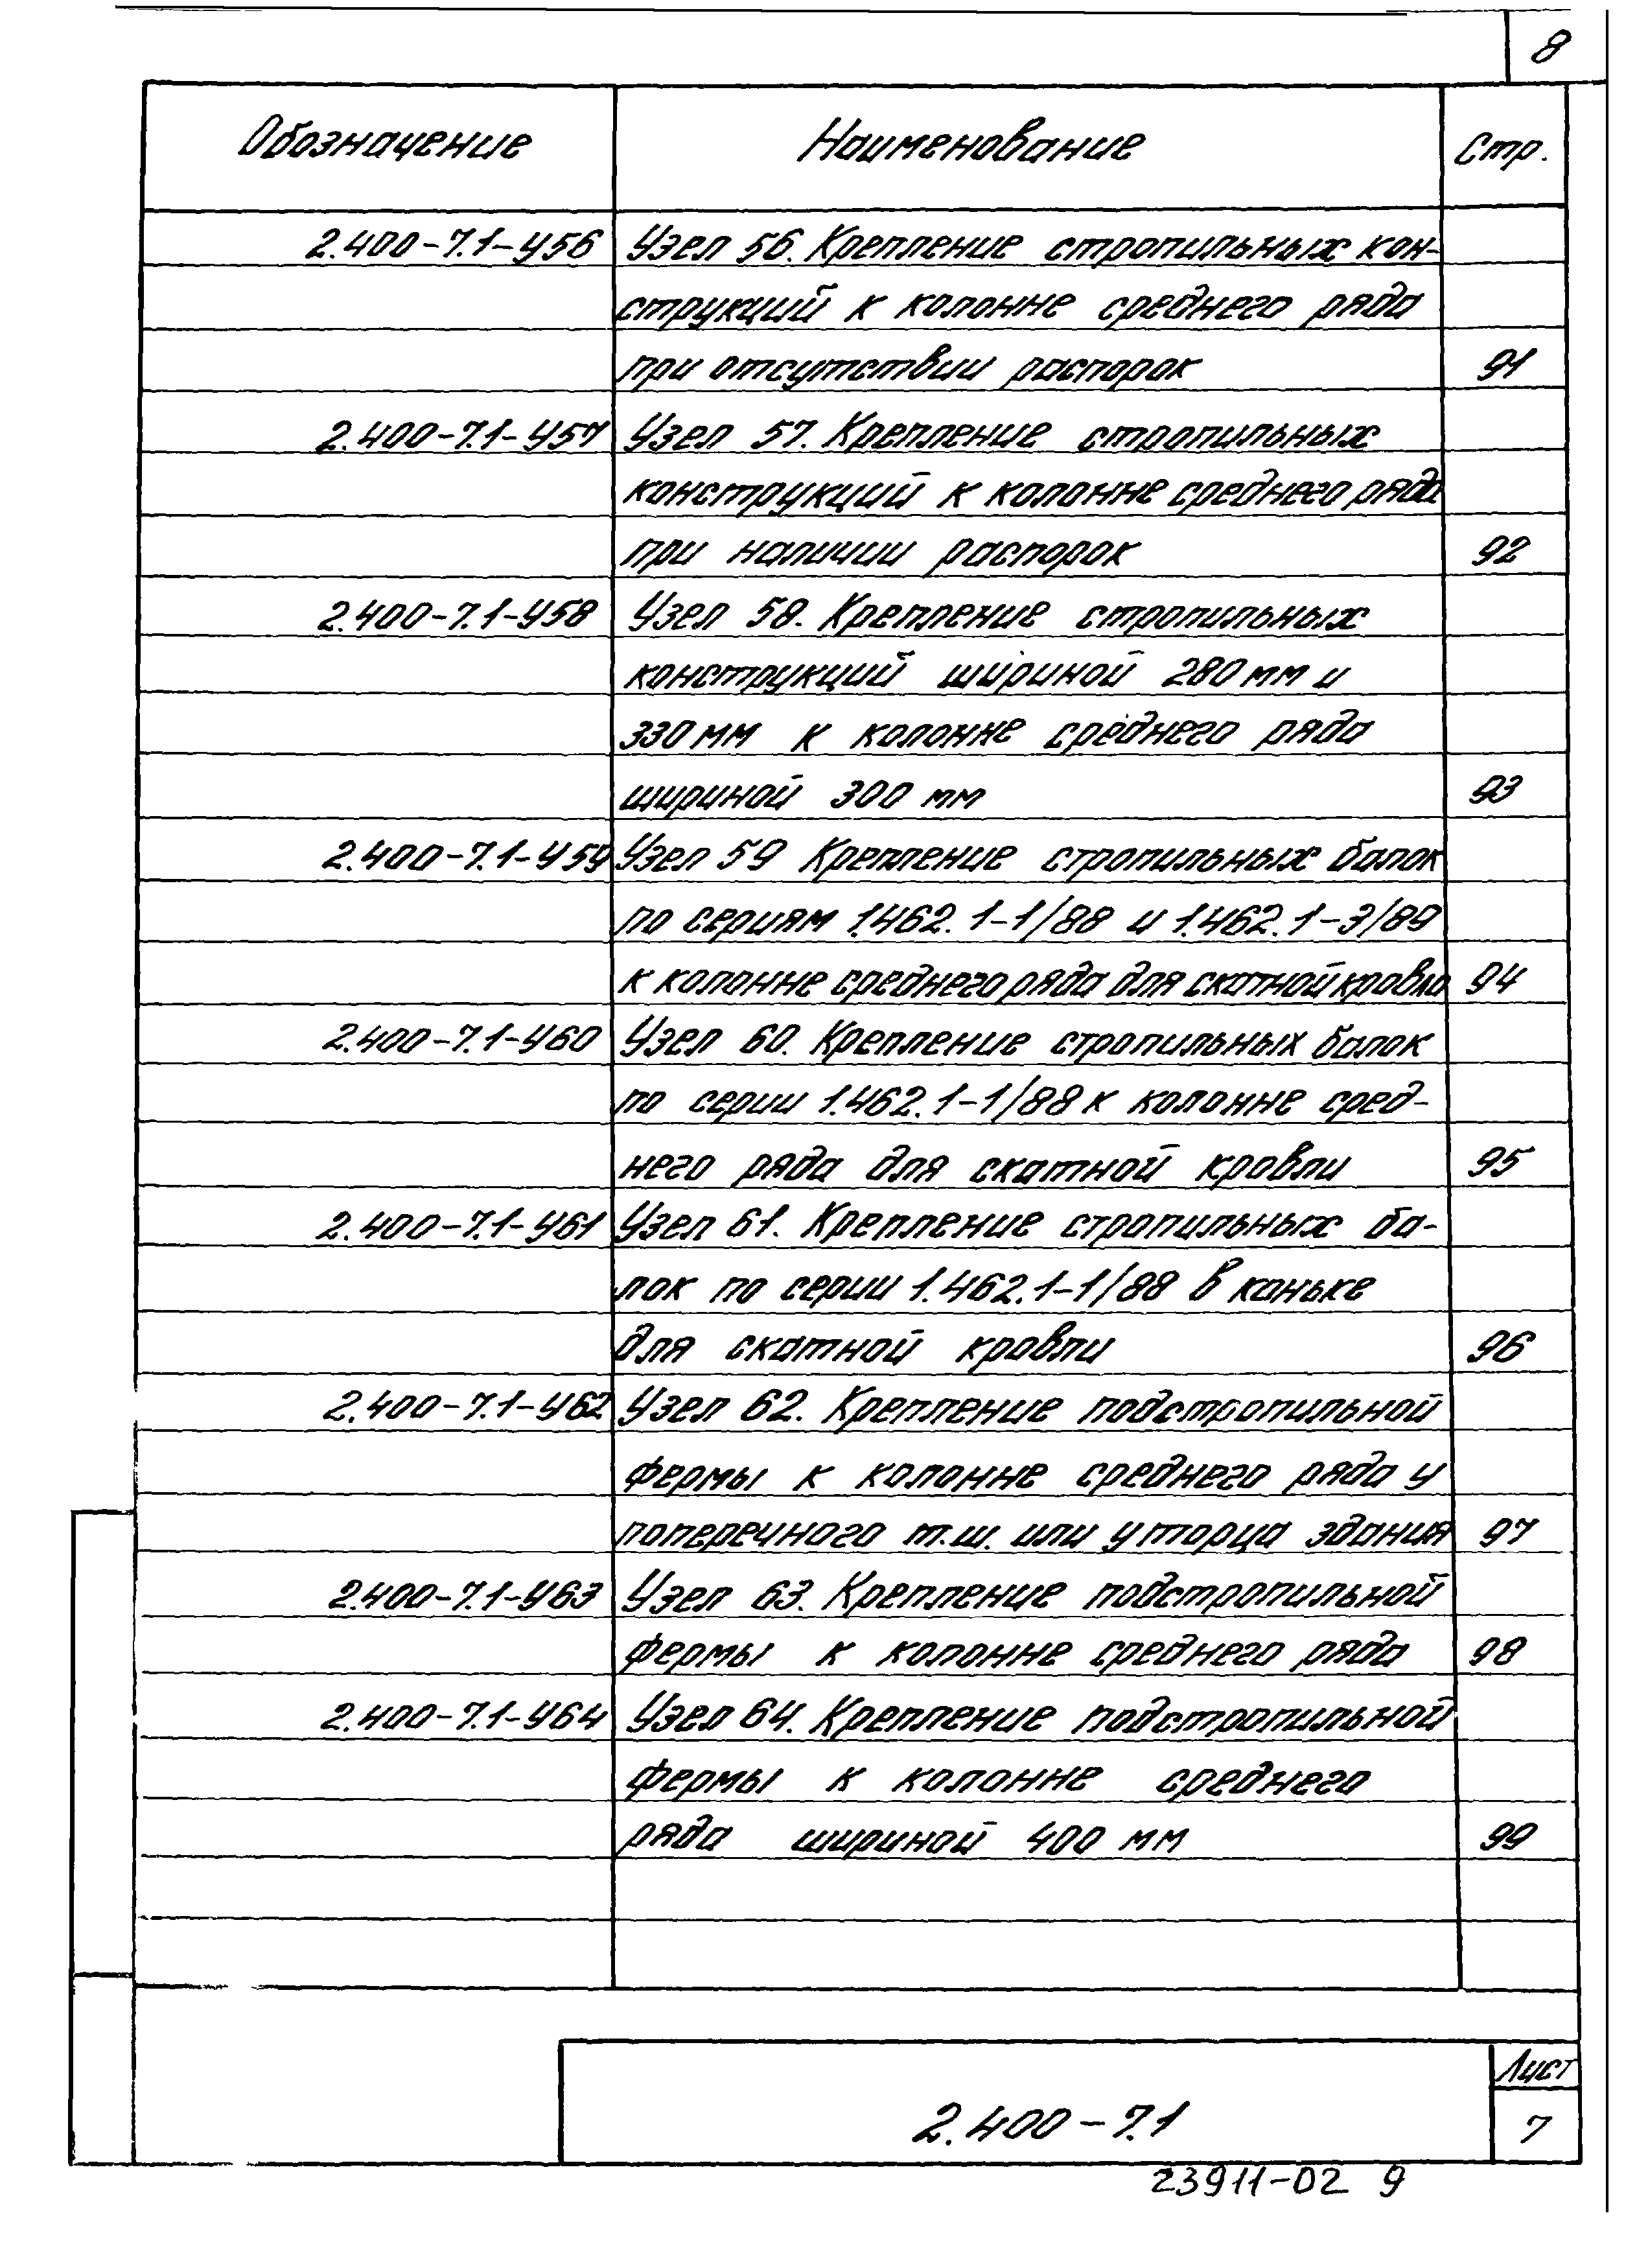 8
Обозначение Наименование Стр.
2.400-7.1-У56 Узел 56. Крепление стропильных кон-
струкций к колонне среднего ряда
при отсутствии распорок 91
2.400-7.1-У57 Узел 57. Крепление стропильных
конструкций к колонне среднего ряда
при наличии распорок 92
2.400-7.1-У58 Узел 58. Крепление стропильных
конструкций шириной 280 мм и
330 мм к колонне среднего ряда
шириной 300 мм 93
2.400-7.1-У59 Узел 59 Крепление стропильных балок
по сериям 1.462.1-1/88 и 1.462.1-3/89
к колонне среднего ряда для скатной кровли 94
2.400-7.1-У60 Узел 60. Крепление стропильных балок
по серии 1.462.1-1/88 к колонне сред-
него ряда для скатной кровли 95
2.400-7.1-У61 Узел 61. Крепление стропильных ба-
лок по серии 1.462.1-1/88 в коньке
для скатной кровли 96
2.400-7.1-У62 Узел 62. Крепление подстропильной
фермы к колонне среднего ряда у
поперечного т.ш. или у торца здания 97
2.400-7.1-У63 Узел 63. Крепление подстропильной
фермы к колонне среднего ряда 98
2.400-7.1-У64 Узел 64. Крепление подстропильной
фермы к колонне среднего
ряда шириной 400 мм 99
Лист
2.400-7.1 7
23911-02 9